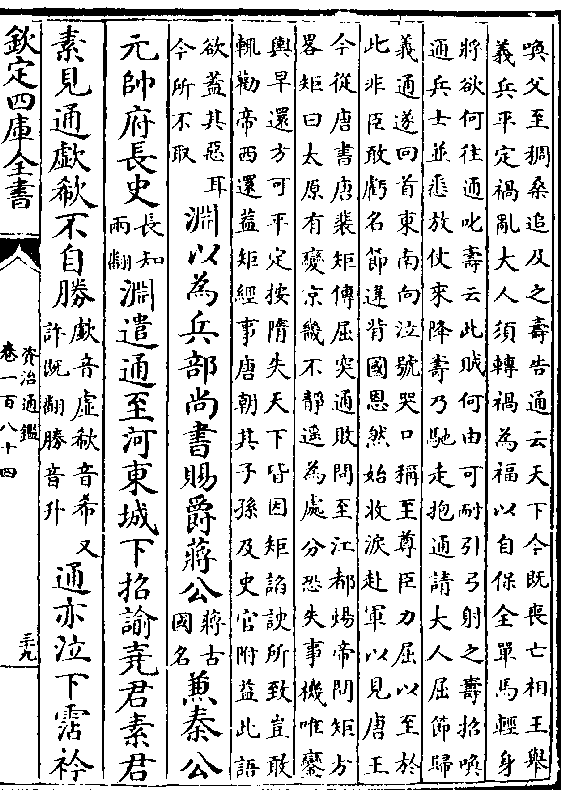 喚父至稠桑追及之壽告通云天下今既喪亡相王舉
義兵平定禍亂大人須轉禍為福以自保全單馬輕身
將欲何往通叱壽云此賊何由可耐引弓射之壽招喚
通兵士並悉放仗來降壽乃馳走抱通請大人屈節歸
義通遂回首東南向泣號哭口稱至尊臣力屈以至於
此非臣敢虧名節違背國恩然始收淚赴軍以見唐王
今從唐書唐裴矩傳屈突通敗問至江都煬帝問矩方
畧矩曰太原有變京畿不靜遥為處分恐失事機唯鑾
輿早還方可平定按隋失天下皆因矩諂諛所致豈敢
輒勸帝西還益矩經事唐朝其子孫及史官附益此語
欲蓋其惡耳今所不取淵以為兵部尚書賜爵蔣公蔣古國名兼秦公
元帥府長史長知兩翻淵遣通至河東城下招諭堯君素君
素見通歔欷不自勝歔音虛欷音希又許既翻勝音升通亦泣下霑衿
欽定四庫全書
資治通鑑
卷一百八十四
三九